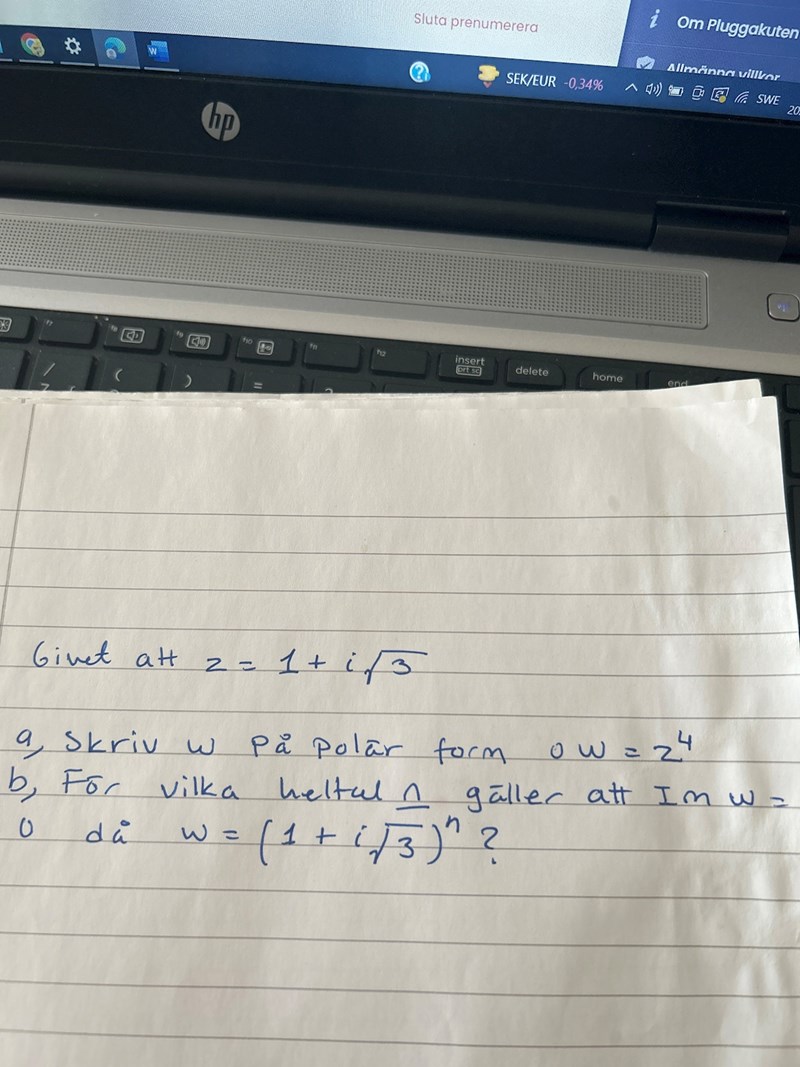 Sluta prenumerera
i Om Pluggakuten
Allmänna villkor
SEK/EUR -0,34%
SWE
hp
insert
prt sc
delete
home
end
Givet att z = 1 + i√3
a, Skriv w på polär form o w = z⁴
b, För vilka heltal n gäller att Im w =
0 då w = (1 + i√3)ⁿ ?